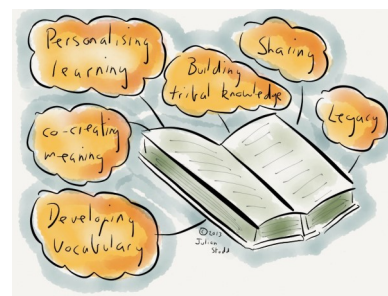 Personalising
learning
Building
tribal knowledge
Sharing
Legacy
co-creating
meaning
Developing
Vocabulary
©2013
Julian
Stodd